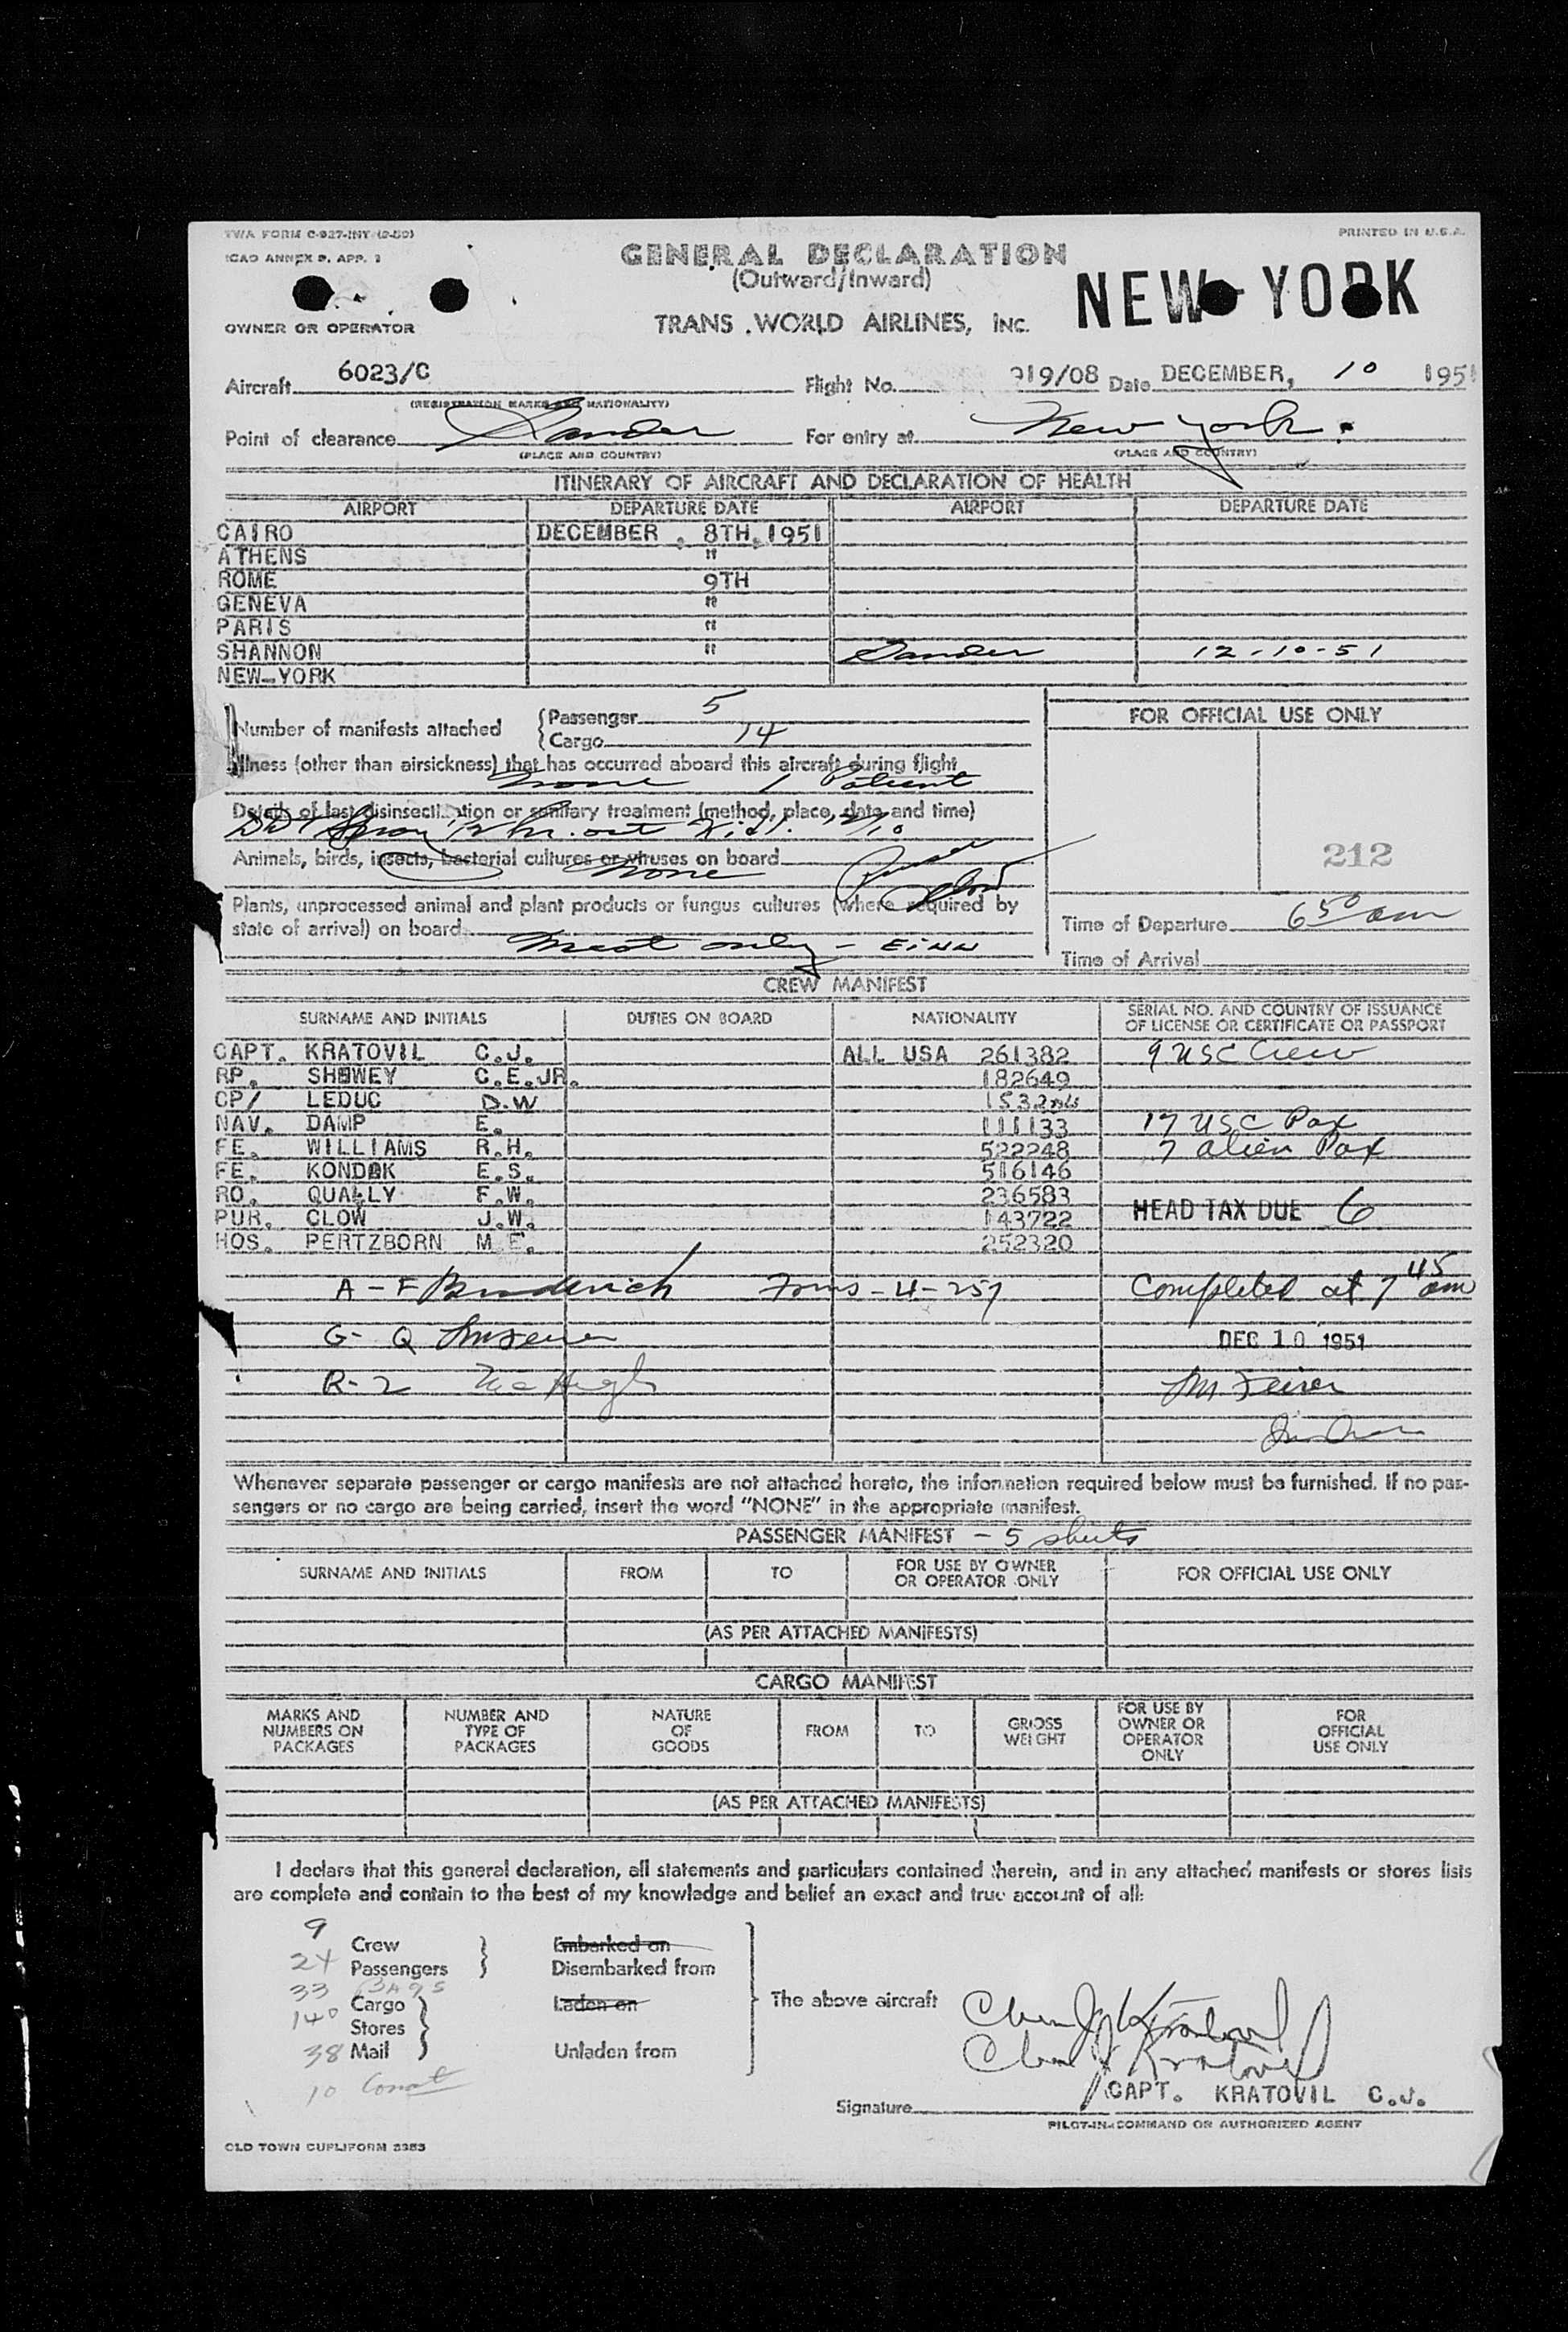 TWA FORM C-927-INT (2-50)
PRINTED IN U.S.A.
ICAO ANNEX 9, APP. 1
GENERAL DECLARATION
(Outward/Inward)
NEW YORK
OWNER OR OPERATOR
TRANS WORLD AIRLINES, INC.
Aircraft 6023/C Flight No. 919/08 Date DECEMBER, 10 1951
(REGISTRATION MARKS AND NATIONALITY)
Point of clearance Gander For entry at New York
(PLACE AND COUNTRY) (PLACE AND COUNTRY)
ITINERARY OF AIRCRAFT AND DECLARATION OF HEALTH
AIRPORT DEPARTURE DATE AIRPORT DEPARTURE DATE
CAIRO DECEMBER . 8TH.1951
ATHENS "
ROME 9TH
GENEVA "
PARIS "
SHANNON " Gander 12-10-51
NEW-YORK
Number of manifests attached {Passenger 5
{Cargo 14
FOR OFFICIAL USE ONLY
Illness (other than airsickness) that has occurred aboard this aircraft during flight
None 1 Patient
Details of last disinsectization or sanitary treatment (method, place, date and time)
DDT Spray out
Animals, birds, insects, bacterial cultures or viruses on board None
212
Plants, unprocessed animal and plant products or fungus cultures (where required by
state of arrival) on board Meat only - EINN
Time of Departure 6 50 am
Time of Arrival
CREW MANIFEST
SURNAME AND INITIALS DUTIES ON BOARD NATIONALITY SERIAL NO. AND COUNTRY OF ISSUANCE OF LICENSE OR CERTIFICATE OR PASSPORT
CAPT. KRATOVIL C.J. ALL USA 261382 9 USC Crew
RP. SHOWEY C.E.JR. 182649
CP/ LEDUC D.W 1532
NAV. DAMP E. 111133 17 USC Pax
FE. WILLIAMS R.H. 522248 7 alien Pax
FE. KONDAK E.S. 516146
RO. QUALLY F.W. 236583
PUR. CLOW J.W. 143722 HEAD TAX DUE 6
HOS. PERTZBORN M.E. 252320
A - F Broderick 4-257 Completed at 7 45 am
G- Q
DEC 10 1951
R-2 McHugh
Whenever separate passenger or cargo manifests are not attached hereto, the information required below must be furnished. If no pas-
sengers or no cargo are being carried, insert the word "NONE" in the appropriate manifest.
PASSENGER MANIFEST - 5 sheets
SURNAME AND INITIALS FROM TO FOR USE BY OWNER OR OPERATOR ONLY FOR OFFICIAL USE ONLY
(AS PER ATTACHED MANIFESTS)
CARGO MANIFEST
MARKS AND NUMBERS ON PACKAGES NUMBER AND TYPE OF PACKAGES NATURE OF GOODS FROM TO GROSS WEIGHT FOR USE BY OWNER OR OPERATOR ONLY FOR OFFICIAL USE ONLY
(AS PER ATTACHED MANIFESTS)
I declare that this general declaration, all statements and particulars contained therein, and in any attached manifests or stores lists
are complete and contain to the best of my knowledge and belief an exact and true account of all:
9 Crew } Embarked on
24 Passengers } Disembarked from
33 BAGS
140 Cargo } Laden on The above aircraft
Stores
38 Mail } Unladen from
10
CAPT. KRATOVIL C.J.
Signature
PILOT-IN-COMMAND OR AUTHORIZED AGENT
OLD TOWN DUPLIFORM 3353